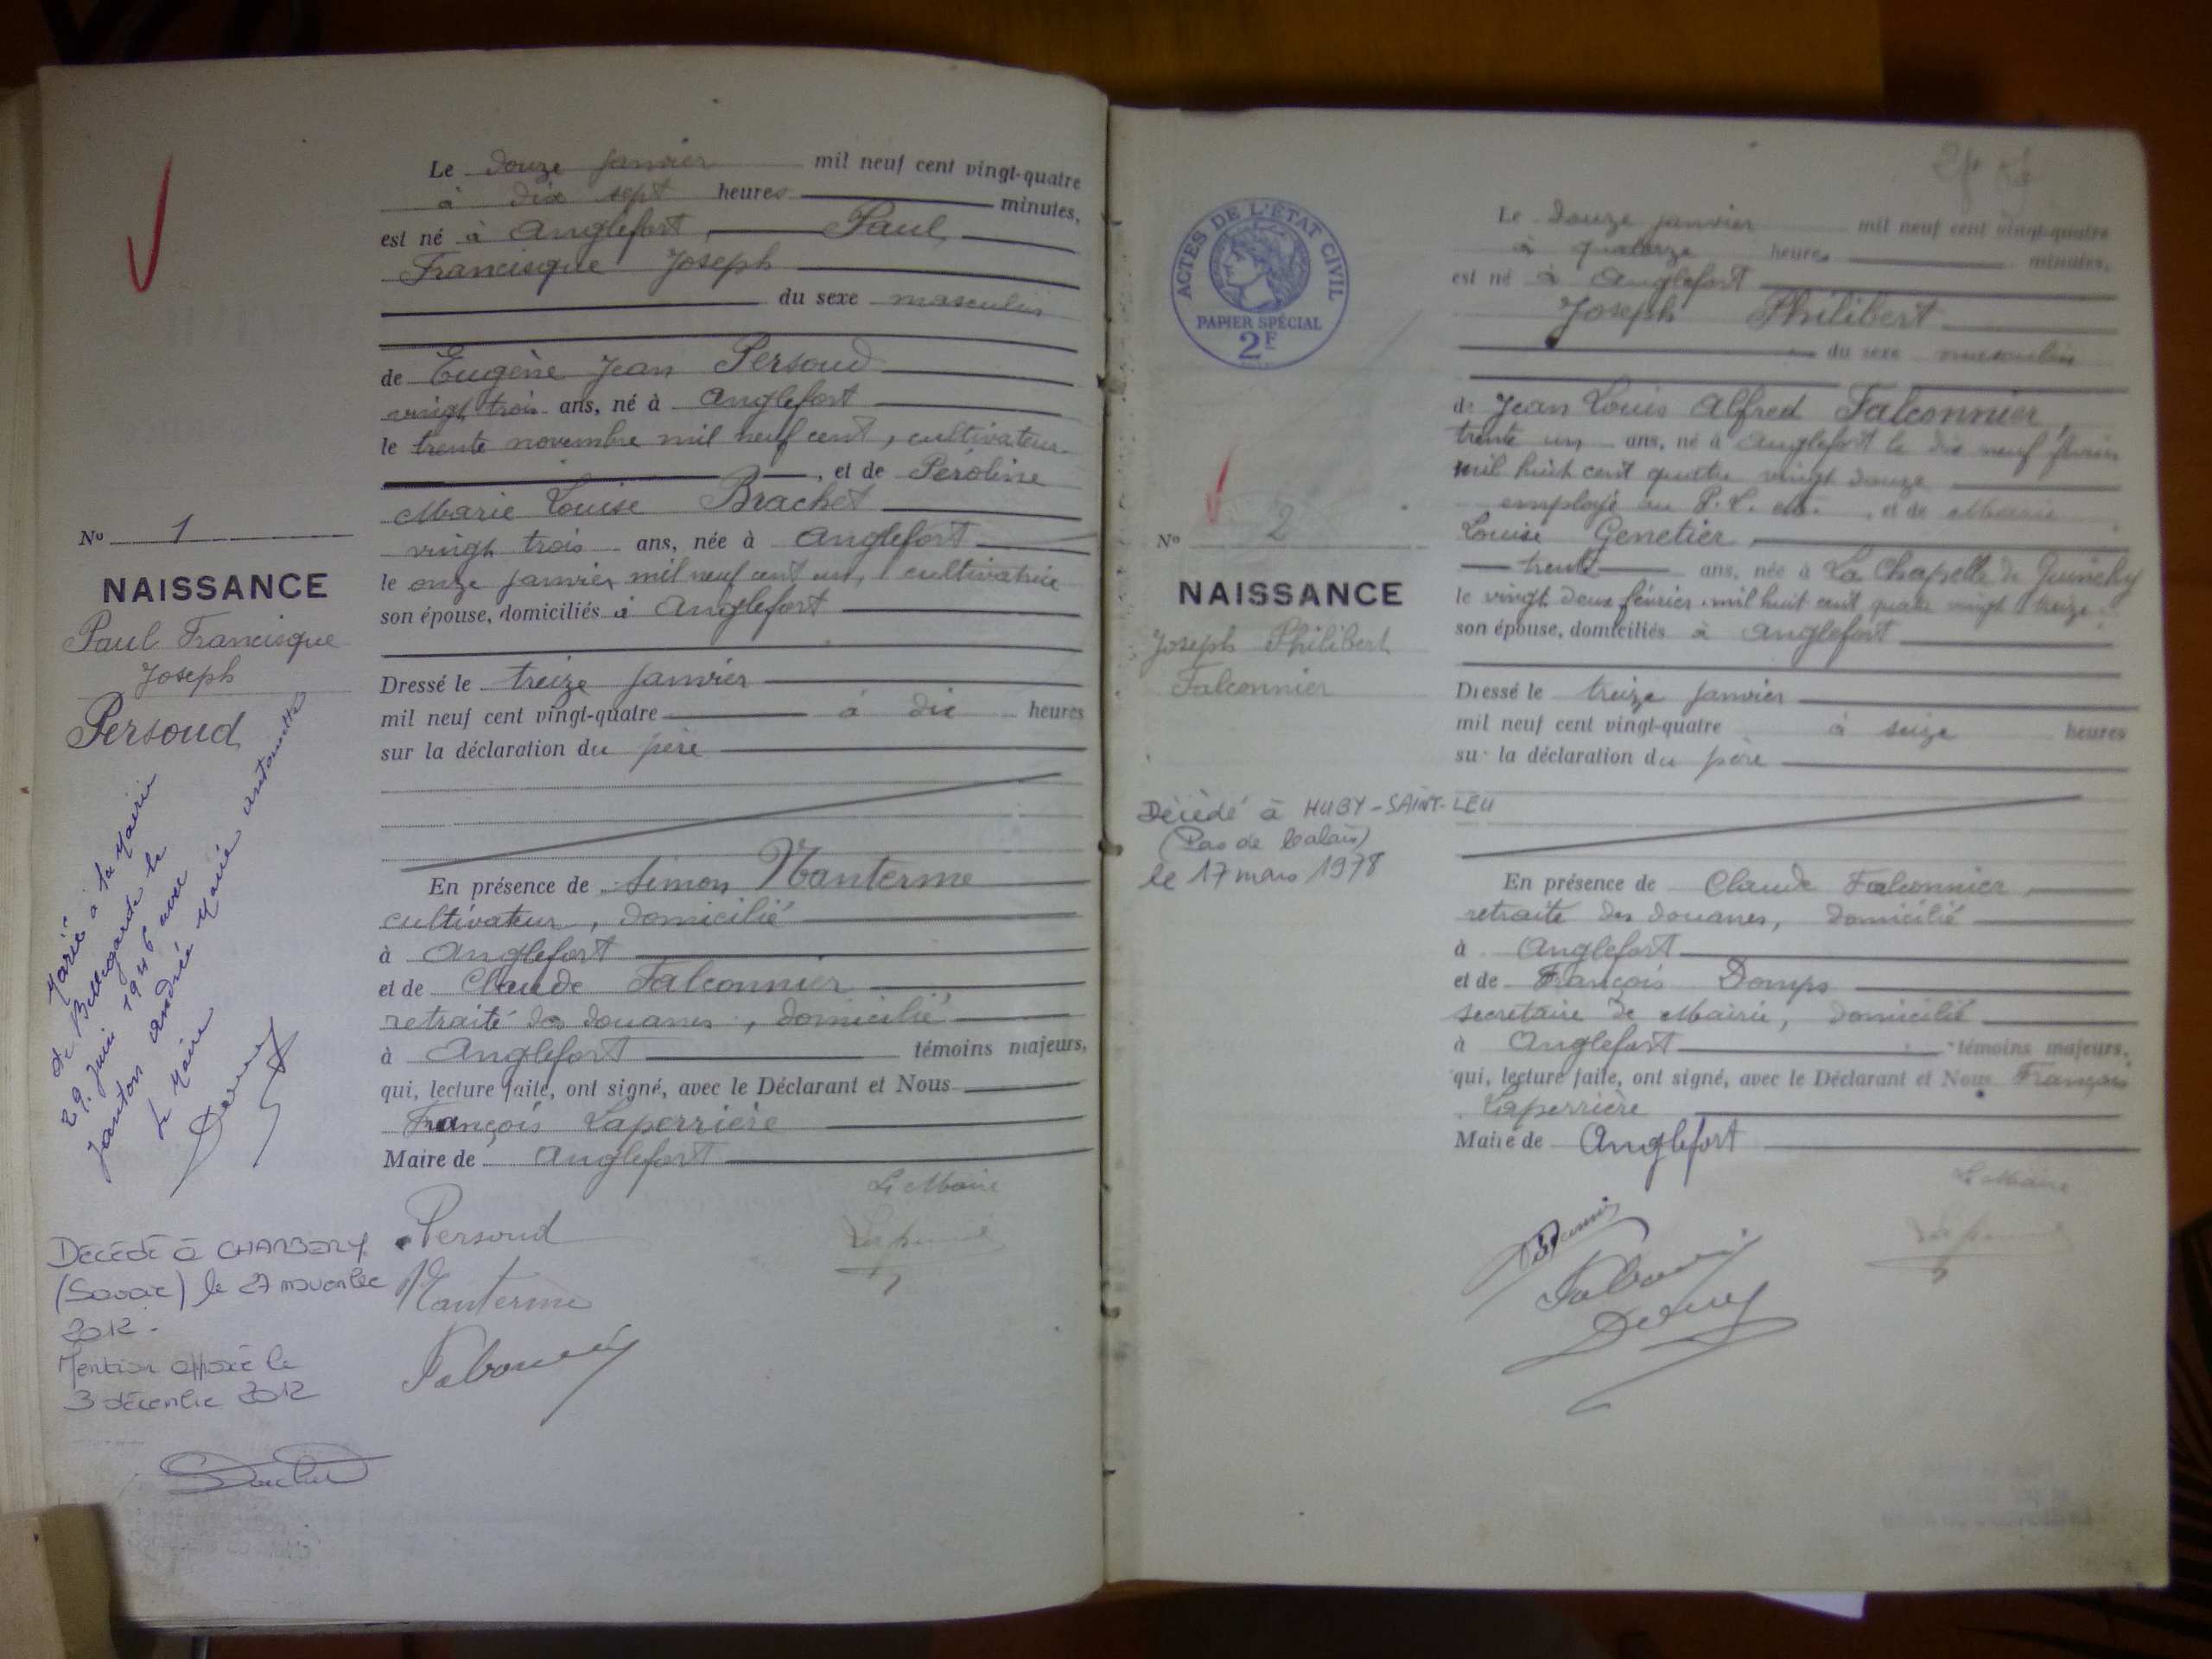 Le douze janvier mil neuf cent vingt-quatre
à dix sept heures minutes,
est né à Anglefort, Paul,
Francisque Joseph
du sexe masculin
de Eugène Jean Persoud
vingt trois ans, né à Anglefort
le trente novembre mil neuf cent, cultivateur
, et de Péroline
Marie Louise Brachet
vingt trois ans, née à Anglefort
le onze janvier mil neuf cent un, cultivatrice
son épouse, domiciliés à Anglefort
Dressé le treize janvier
mil neuf cent vingt-quatre à dix heures
sur la déclaration du père
En présence de Simon Nanterme
cultivateur, domicilié
à Anglefort
et de Claude Falconnier
retraité des douanes, domicilié
à Anglefort témoins majeurs,
qui, lecture faite, ont signé, avec le Déclarant et Nous
François Laperrière
Maire de Anglefort
Le Maire
Persoud
Nanterme
No 1
NAISSANCE
Paul Francisque
Joseph
Persoud
Marié à la Mairie
de Bellegarde le
29 Juin 1946 avec
Janton Andrée Marie Antoinette
Le Maire
Décédé à CHAMBERY
(Savoie) le 27 novembre
2012.
Mention apposée le
3 décembre 2012
ACTES DE L'ÉTAT CIVIL
PAPIER SPÉCIAL
2F
Le douze janvier mil neuf cent vingt-quatre
à quatorze heures minutes,
est né à Anglefort
Joseph Philibert
du sexe masculin
de Jean Louis Alfred Falconnier,
trente un ans, né à Anglefort le dix neuf février
mil huit cent quatre vingt douze
employé au P. L. M. , et de Marie
Louise Genetier
trente ans, née à La Chapelle de Guinchy
le vingt deux février mil huit cent quatre vingt treize
son épouse, domiciliés à Anglefort
Dressé le treize janvier
mil neuf cent vingt-quatre à seize heures
sur la déclaration du père
En présence de Claude Falconnier
retraité des douanes, domicilié
à Anglefort
et de François Domps
secrétaire de Mairie, domicilié
à Anglefort témoins majeurs,
qui, lecture faite, ont signé, avec le Déclarant et Nous François
Laperrière
Maire de Anglefort
Le Maire
No 2
NAISSANCE
Joseph Philibert
Falconnier
Décédé à HUBY-SAINT-LEU
(Pas de Calais)
le 17 mars 1978